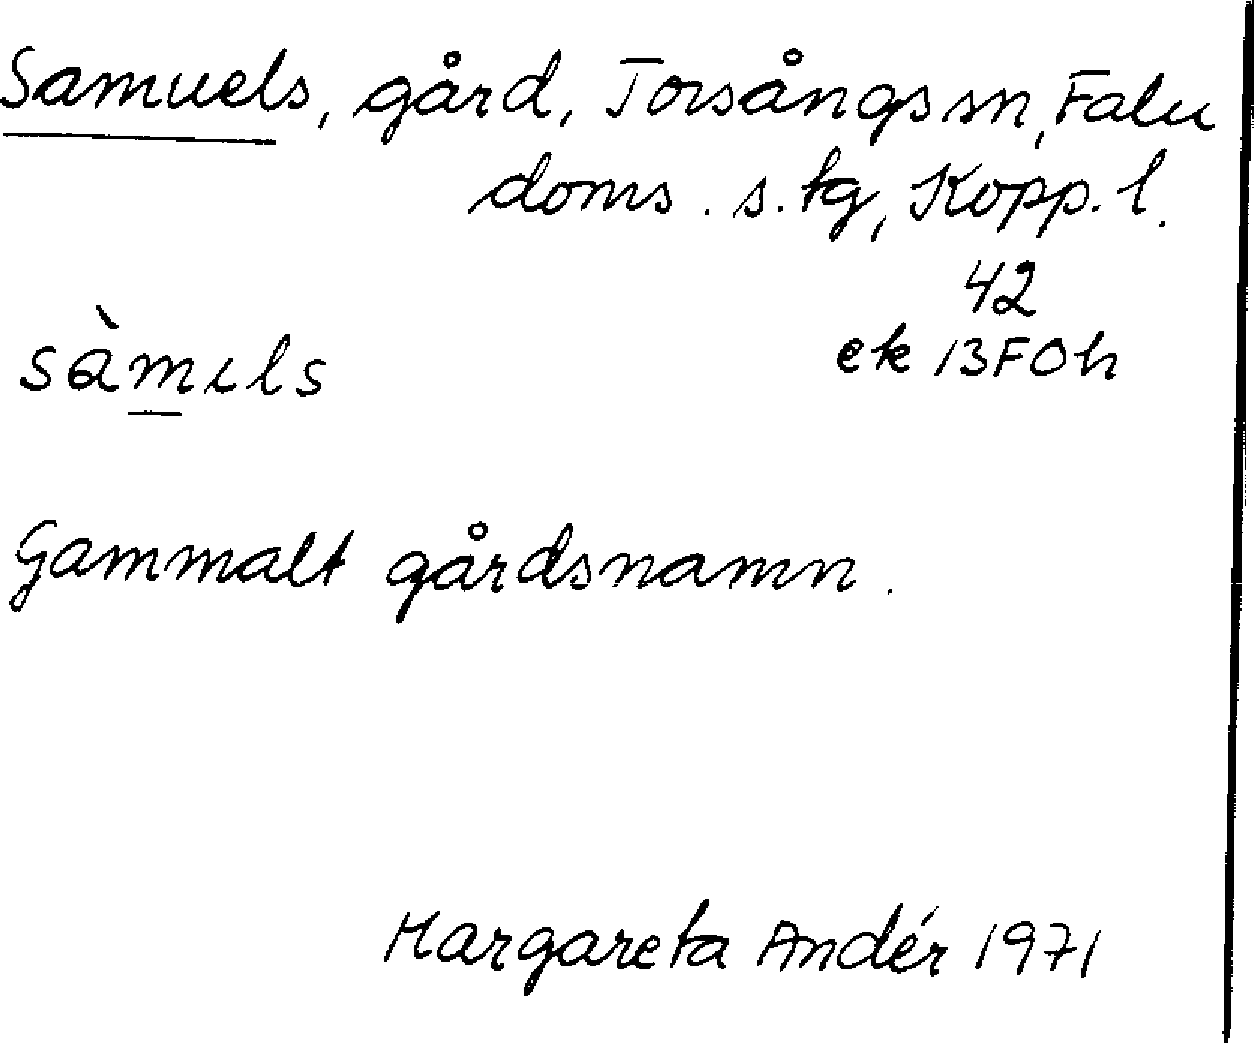 Samuels, gård, Torsångs sn, Falu
doms. s. tg, Kopp. l.
42
sàmıls ek 13F0h
Gammalt gårdsnamn.
Margareta Andér 1971